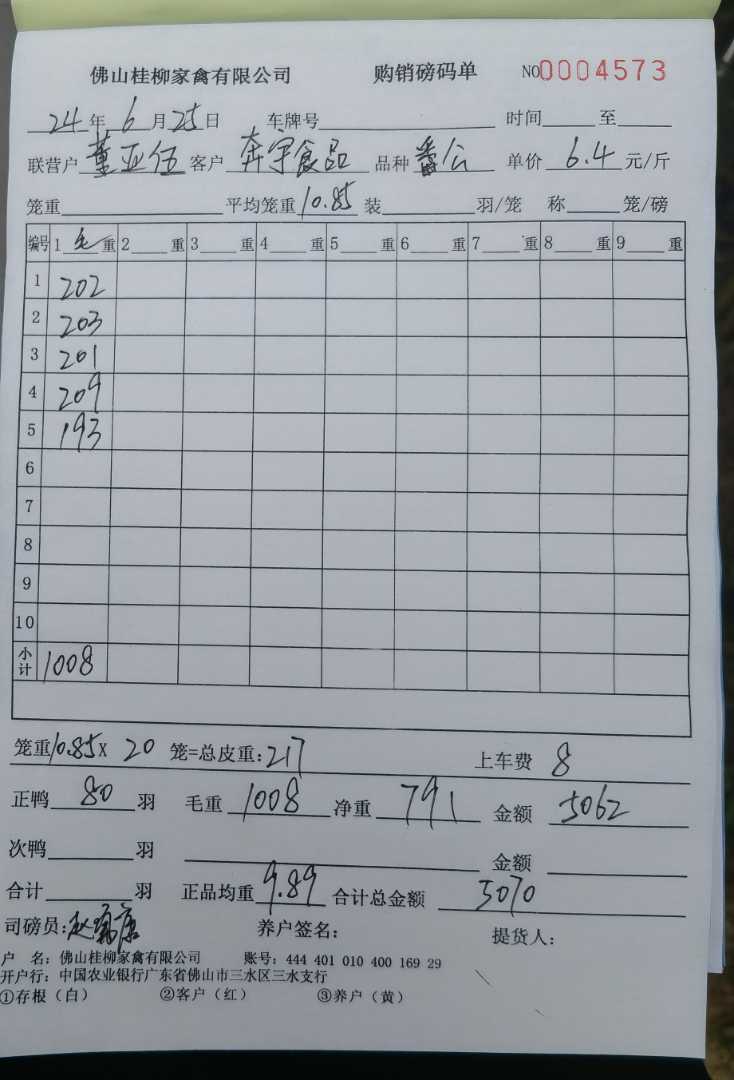 佛山桂柳家禽有限公司 购销磅码单 NO0004573
24年6月25日 车牌号 时间 至
联营户 董亚伍 客户 奔宇食品 品种 番公 单价 6.4 元/斤
笼重 平均笼重 10.85 装 羽/笼 称 笼/磅
编号 1 毛 重 2 重 3 重 4 重 5 重 6 重 7 重 8 重 9 重
1 202
2 203
3 201
4 209
5 193
6
7
8
9
10
小计 1008
笼重10.85X 20 笼=总皮重:217 上车费 8
正鸭 80 羽 毛重 1008 净重 791 金额 5062
次鸭 羽 金额
合计 羽 正品均重 9.89 合计总金额 5070
司磅员: 养户签名: 提货人:
户 名: 佛山桂柳家禽有限公司 账号: 444 401 010 400 169 29
开户行: 中国农业银行广东省佛山市三水区三水支行
①存根(白) ②客户(红) ③养户(黄)